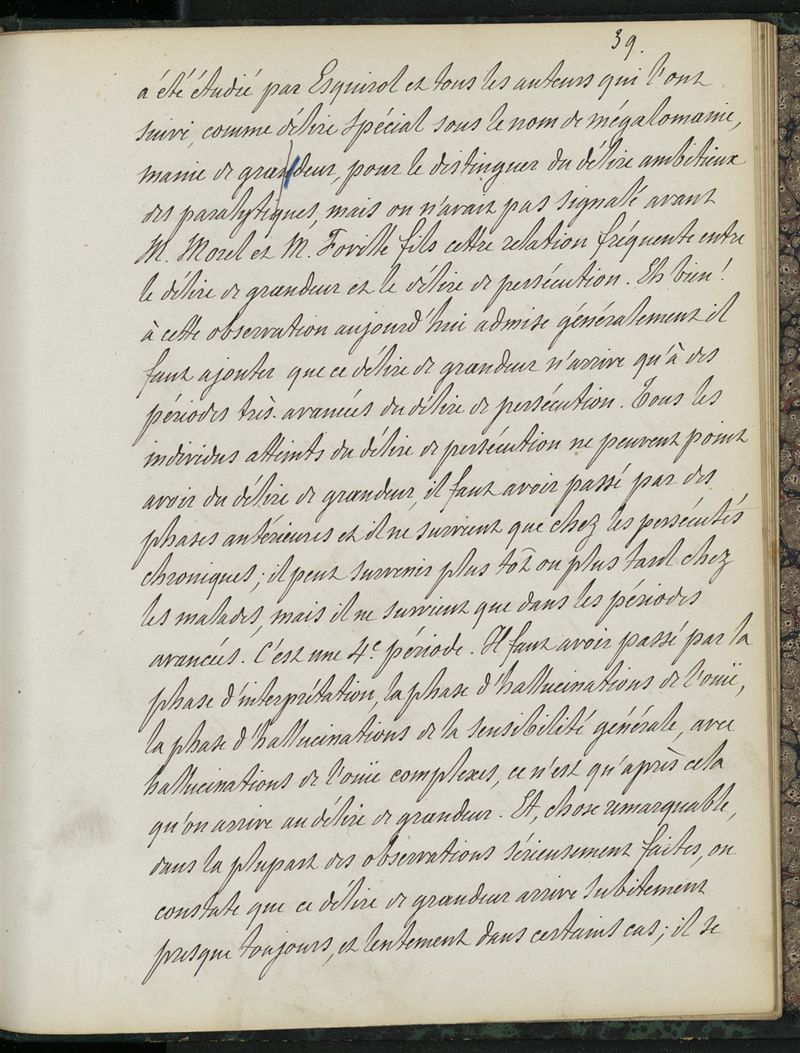 39.
a été étudié par Esquirol et tous les auteurs qui l'ont
suivi, comme délire spécial sous le nom de mégalomanie,
manie de grandeur, pour le distinguer du délire ambitieux
des paralytiques, mais on n'avait pas signalé avant
M. Morel et M. Foville fils cette relation fréquente entre
le délire de grandeur et le délire de persécution. Eh bien!
à cette observation aujourd'hui admise généralement il
faut ajouter que ce délire de grandeur n'arrive qu'à des
périodes très avancées du délire de persécution. Tous les
individus atteints du délire de persécution ne peuvent point
avoir du délire de grandeur, il faut avoir passé par des
phases antérieures et il ne survient que chez les persécutés
chroniques; il peut survenir plus tôt ou plus tard chez
les malades, mais il ne survient que dans les périodes
avancées. C'est une 4e. période. Il faut avoir passé par la
phase d'interprétation, la phase d'hallucinations de l'ouïe,
la phase d'hallucinations de la sensibilité générale, avec
hallucinations de l'ouïe complexes, ce n'est qu'après cela
qu'on arrive au délire de grandeur. Et, chose remarquable,
dans la plupart des observations sérieusement faites, on
constate que ce délire de grandeur arrive subitement
presque toujours, et lentement dans certains cas; il se